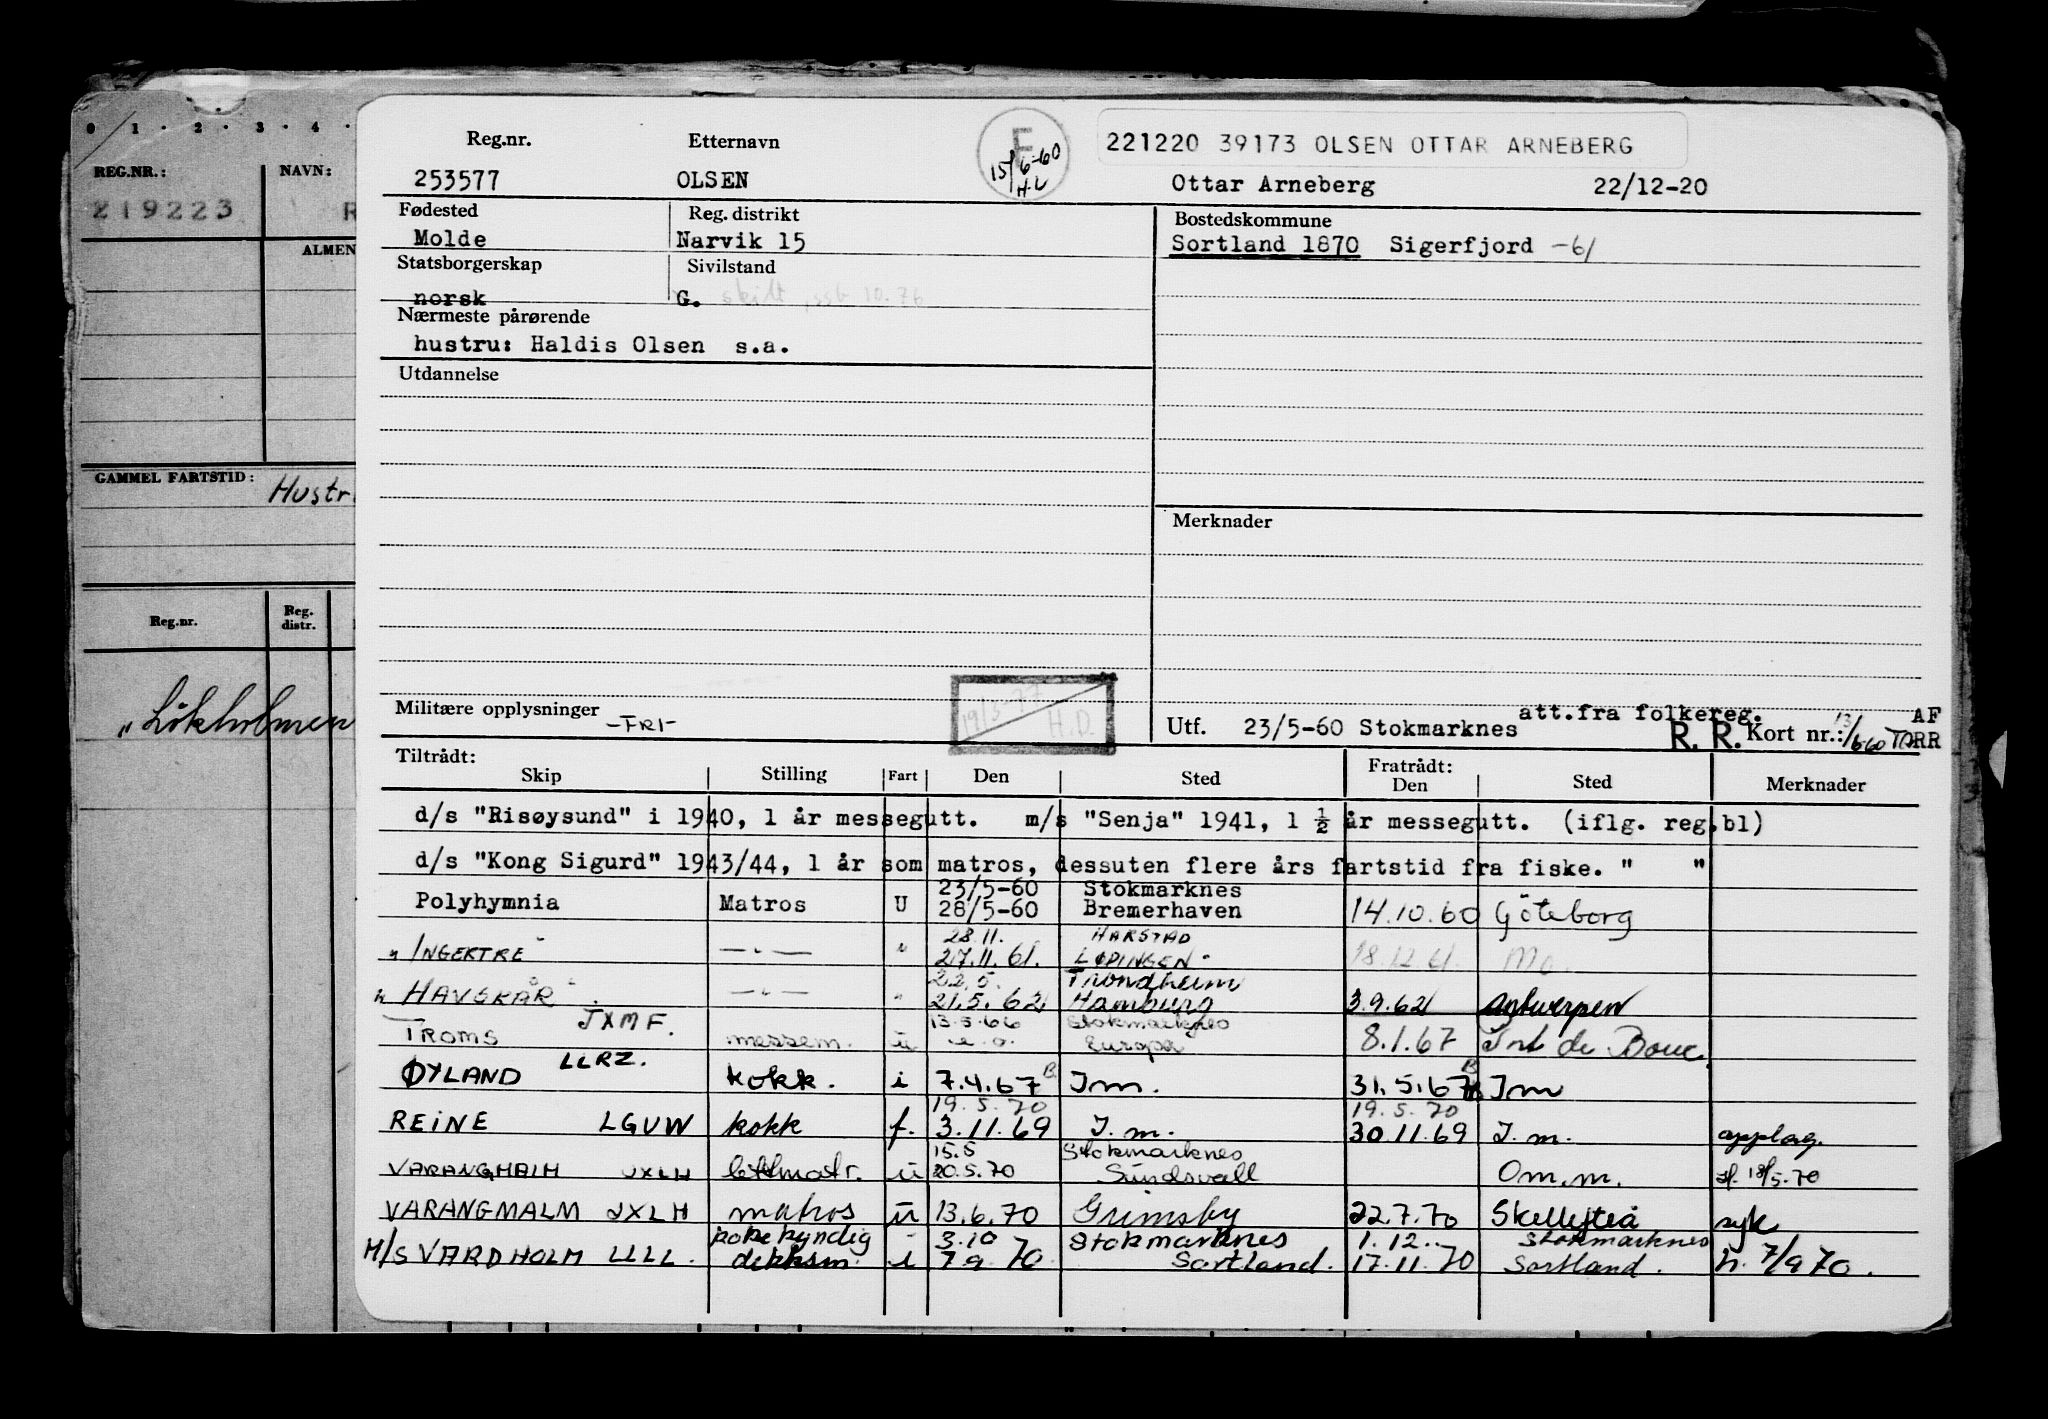 0 1 · 2 · 3 · 4 ·
REG.NR.: NAVN:
219223 R
ALMEN
GAMMEL FARTSTID: Hustr
Reg.nr. Reg. distr.
"Løkholmen
Reg.nr. Etternavn
F 15/6-60 H.L
221220 39173 OLSEN OTTAR ARNEBERG
253577 OLSEN Ottar Arneberg 22/12-20
Fødested Reg. distrikt Bostedskommune
Molde Narvik 15 Sortland 1870 Sigerfjord -61
Statsborgerskap Sivilstand
norsk G. skilt, 10.76
Nærmeste pårørende
hustru: Haldis Olsen s.a.
Utdannelse
Merknader
19/5-77 H.D.
Militære opplysninger -FRI-
Utf. 23/5-60 Stokmarknes att.fra folkereg. AF
R. R. Kort nr.: 13/6-60 RR
Tiltrådt: Fratrådt:
Skip Stilling Fart Den Sted Den Sted Merknader
d/s "Risøysund" i 1940, 1 år messegutt. m/s "Senja" 1941, 1 ½ år messegutt. (iflg. reg.bl)
d/s "Kong Sigurd" 1943/44, 1 år som matros, dessuten flere års fartstid fra fiske. " "
23/5-60 Stokmarknes
Polyhymnia Matros U 28/5-60 Bremerhaven 14.10.60 Göteborg
28.11. HARSTAD
" INGERTRE —"— " 27.11.61. LØDINGEN 18.12.61. Mo.
22.5. Trondheim
" HAVSKÅR —"— " 21.5.62 Hamburg 3.9.62 Antwerpen
13.5.66 Stokmarknes
TROMS JXMF. messem. u u.o. Europa 8.1.67 Port de Bouc
ØYLAND LLRZ. kokk. i 7.4.67 B. I m. 31.5.67 B I m
19.5.70 19.5.70
REINE LGUW kokk f. 3.11.69 I. m. 30.11.69 I. m. opplag.
15.5 Stokmarknes
VARANGMALM JXLH lettmatr. u 20.5.70 Sundsvall Om.m. 18/5.70
VARANGMALM JXLH matros u 13.6.70 Grimsby 22.7.70 Skellefteå syk
kokekyndig 3.10 Stokmarknes 1.12. Stokmarknes
M/S VARDHOLM LLLL. dekksm. i 7.9.70 Sortland. 17.11.70 Sortland. h. 7/9 70.